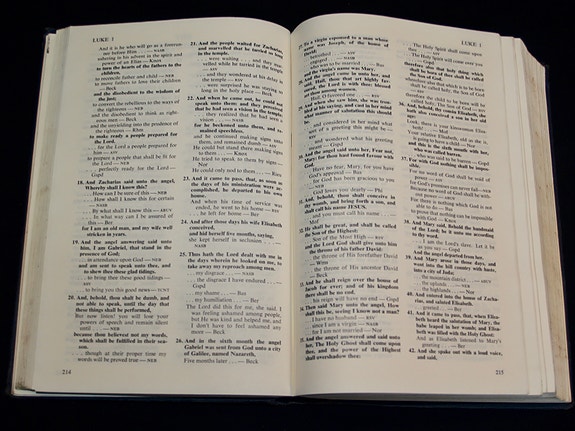 LUKE 1
And it is he who will go as a forerun-
ner before Him . . . — NASB
ushering in his advent in the spirit and
power of an Elias — Knox
to turn the hearts of the fathers to the
children,
to reconcile father and child — NEB
to move fathers to love their children
— Beck
and the disobedient to the wisdom of
the just;
to convert the rebellious to the ways of
the righteous — NEB
and the disobedient to think as right-
eous men — Beck
and the unyielding into the prudence of
the righteous — Rhm
to make ready a people prepared for
the Lord.
. . . for the Lord a people prepared for
him — Knox
to prepare a people that shall be fit for
the Lord — NEB
. . . perfectly ready for the Lord —
Gspd
18. And Zacharias said unto the angel,
Whereby shall I know this?
How can I be sure of this — NEB
How shall I know this for certain
. . . — NASB
. . . By what shall I know this — ABUV
. . . In what way can I be assured of
this — Ber
for I am an old man, and my wife well
stricken in years.
19. And the angel answering said unto
him, I am Gabriel, that stand in the
presence of God;
. . . in attendance upon God — NEB
and am sent to speak unto thee, and
to shew thee these glad tidings.
. . . to bring thee these good tidings —
ASV
. . . to bring you this good news — TCNT
20. And, behold, thou shalt be dumb, and
not able to speak, until the day that
these things shall be performed,
But now listen! you will lose your
powers of speech and remain silent
until . . . — NEB
because thou believest not my words,
which shall be fulfilled in their sea-
son.
. . . though at their proper time my
words will be proved true — NEB
214
21. And the people waited for Zacharias,
and marvelled that he tarried so long
in the temple.
. . . were waiting
velled while he tarried in the temple
— ASV
. . . and they wondered at his delay in
the temple — RSV
. . . were surprised he was staying so
long in the holy place — Beck
22. And when he came out, he could not
speak unto them: and they perceived
that he had seen a vision in the temple:
. . . they realized that he had seen a
vision . . . — NASB
for he beckoned unto them, and re-
mained speechless.
and he continued making signs unto
them, and remained dumb — ASV
He could but stand there making signs
to them . . . — Knox
He tried to speak to them by signs —
Nor
He could only nod to them . . . — Rieu
23. And it came to pass, that, as soon as
the days of his ministration were ac-
complished, he departed to his own
house.
And when his time of service was
ended, he went to his home — RSV
. . . he left for home — Ber
24. And after those days his wife Elisabeth
conceived,
and hid herself five months, saying,
she kept herself in seclusion . . . —
NASB
25. Thus hath the Lord dealt with me in
the days wherein he looked on me, to
take away my reproach among men.
. . . my disgrace . . . — RSV
. . . the disgrace I have endured —
Gspd
. . . my shame — Bas
. . . my humiliation . . . — Ber
The Lord did this for me, she said. I
was feeling ashamed among people,
but He was kind and helped me, and
I don't have to feel ashamed any
more — Beck
26. And in the sixth month the angel
Gabriel was sent from God unto a city
of Galilee, named Nazareth,
Five months later . . . — Beck
LUKE 1
27. To a virgin espoused to a man whose
name was Joseph, of the house of
David;
. . . betrothed . . . — ASV
. . . engaged . . . — NASB
who was to be married . . . — Bas
and the virgin's name was Mary.
28. And the angel came in unto her, and
said, Hail, thou that art highly fav-
oured, the Lord is with thee: blessed
art thou among women.
. . . Hail, O favored one
29. And when she saw him, she was trou-
bled at his saying, and cast in her mind
what manner of salutation this should
be.
. . . and considered in her mind what
sort of a greeting this might be —
RSV
. . . and wondered what his greeting
meant — Gspd
30. And the angel said unto her, Fear not,
Mary: for thou hast found favour with
God.
Have no fear, Mary, for you have
God's approval — Bas
. . . for God has been gracious to you
— NEB
. . . God loves you dearly — Phi
31. And, behold, thou shalt conceive in
thy womb, and bring forth a son, and
shalt call his name JESUS.
. . . and you must call his name . . . —
Mof
32. He shall be great, and shall be called
the Son of the Highest:
. . . Son of the Most High — RSV
and the Lord God shall give unto him
the throne of his father David:
. . . the throne of His forefather David
— Wms
. . . the throne of His ancestor David
— Beck
33. And he shall reign over the house of
Jacob for ever; and of his kingdom
there shall be no end.
. . . his reign will have no end — Gspd
34. Then said Mary unto the angel, How
shall this be, seeing I know not a man?
. . . I have no husband
. . . since I am a virgin — NASB
. . . for I am not married? — Nor
35. And the angel answered and said unto
her, The Holy Ghost shall come upon
thee, and the power of the Highest
shall overshadow thee:
. . . The Holy Spirit shall come upon
thee — ASV
The Holy Spirit will come over you
. . . — Gspd
therefore also that holy thing which
shall be born of thee shall be called
the Son of God.
therefore the child to be born will be
called holy, The Son of God — RSV
36. And, behold, thy cousin Elisabeth, she
hath also conceived a son in her old
age:
Your relative Elizabeth, old as she is,
is going to have a child — Nor
and this is the sixth month with her,
who was called barren.
. . . who was said to be barren — Gspd
37. For with God nothing shall be impos-
sible.
For no word of God shall be void of
power — ASV
for God's promises can never fail — NEB
Because no word of God shall be with-
out power
For there is nothing which God is not
able to do — Bas
. . . to prove that nothing can be impossible
with God — Knox
38. And Mary said, Behold the handmaid
of the Lord; be it unto me according
to thy word.
. . . I am the Lord's slave. Let it be
as you say — Gspd
And the angel departed from her.
39. And Mary arose in those days, and
went into the hill country with haste,
into a city of Juda;
. . . the mountain district — ABUV
. . . the uplands — NEB
. . . the highlands
40. And entered into the house of Zacha-
rias, and saluted Elisabeth.
. . . greeted — Ber
41. And it came to pass, that, when Elisa-
beth heard the salutation of Mary, the
babe leaped in her womb; and Elisa-
beth was filled with the Holy Ghost:
And as Elisabeth listened to Mary's
greeting . . . — Ber
42. And she spake out with a loud voice,
and said,
215